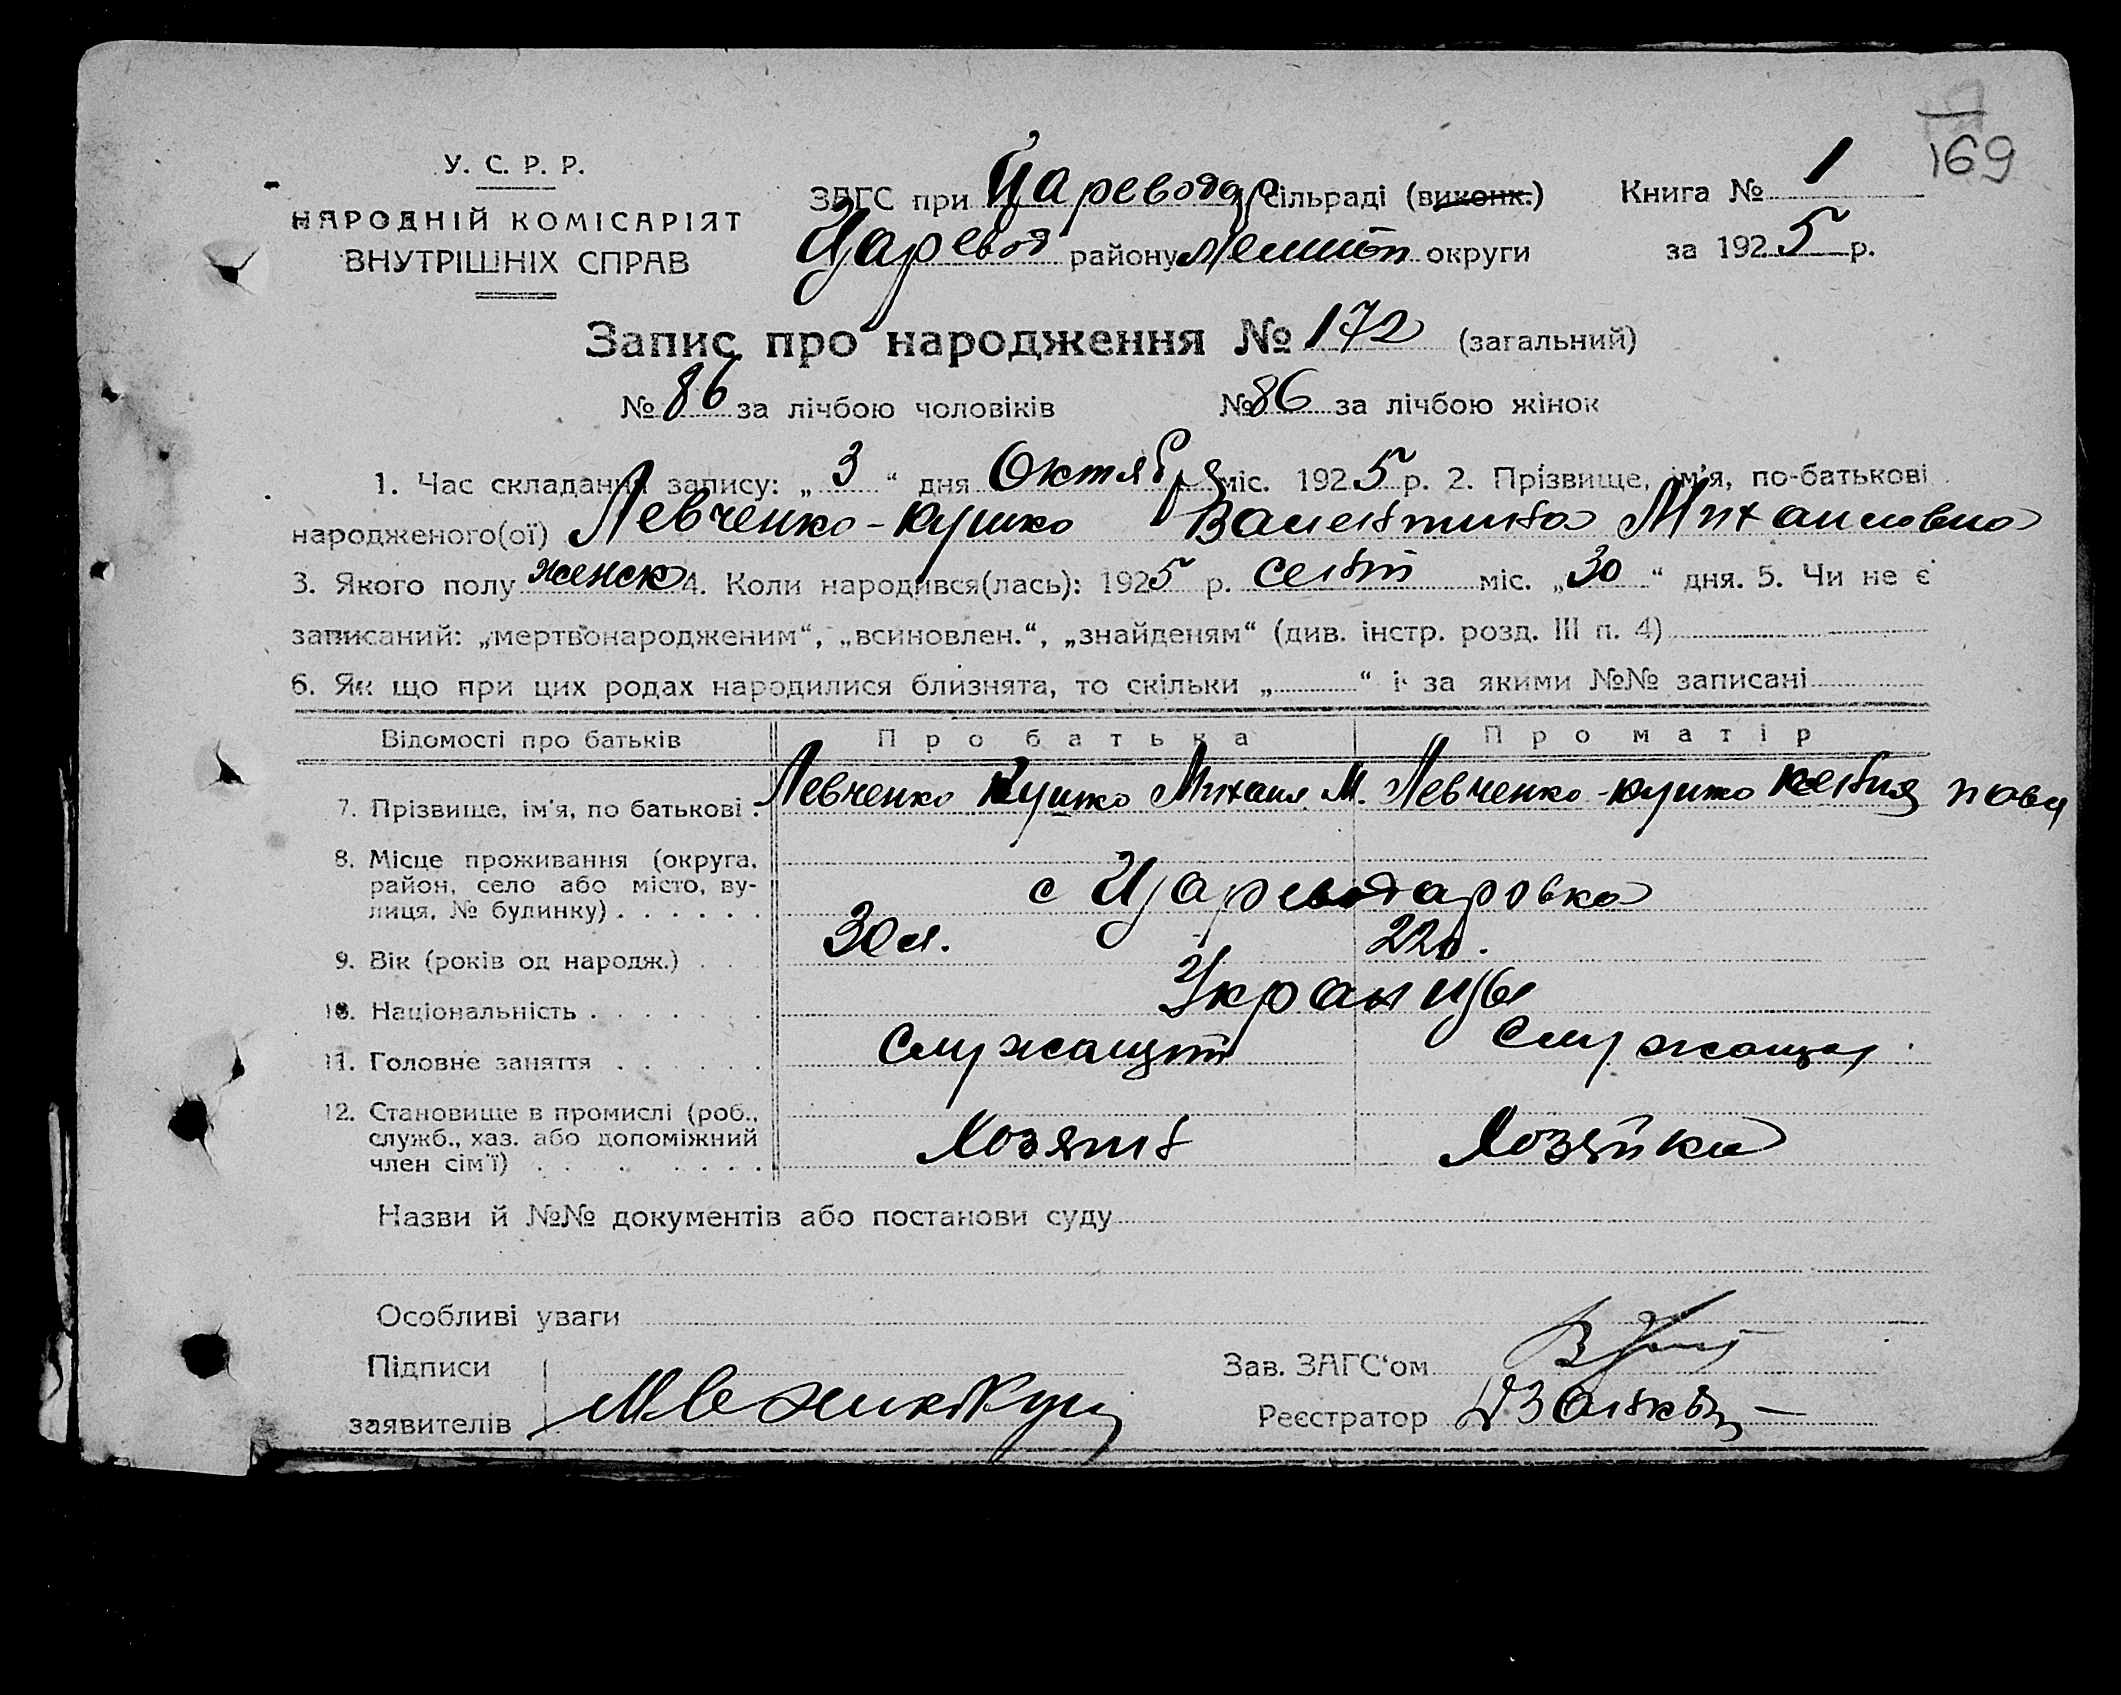 169
У. С. Р. Р.
НАРОДНІЙ КОМІСАРІЯТ
ВНУТРІШНІХ СПРАВ
ЗАГС при Царевода сільраді (виконк.)
Царевод району округи
Книга № 1
за 1925 р.
Запис про народження № 172 (загальний)
№ 86 за лічбою чоловіків № 86 за лічбою жінок
1. Час складання запису: „ 3 “ дня Октября міс. 1925 р. 2. Прізвище, ім'я, по-батькові
народженого(ої) Левченко-Кушко Валентина Михаиловна
3. Якого полу женск 4. Коли народився(лась): 1925 р. сент міс. „ 30 “ дня. 5. Чи не є
записаний: „мертвонародженим“, „всиновлен.“, „знайденям“ (див. інстр. розд. III п. 4)
6. Як що при цих родах народилися близнята, то скільки „ “ і за якими №№ записані
Відомості про батьків Про батька Про матір
7. Прізвище, ім'я, по батькові . Левченко Кушко Михаил М. Левченко-Кушко
8. Місце проживання (округа,
район, село або місто, ву-
лиця, № будинку) . . . . . . с Цареводаровка
9. Вік (років од народж.) . . 30 л. 22
10. Національність . . . . . . . Украинцы
11. Головне заняття . . . . . . Служащий Служащая
12. Становище в промислі (роб.,
служб., хаз. або допоміжний
член сім'ї) . . . . . . . . Хозяин Хозяйка
Назви й №№ документів або постанови суду
Особливі уваги
Підписи
заявителів
Зав. ЗАГС‘ом
Реєстратор